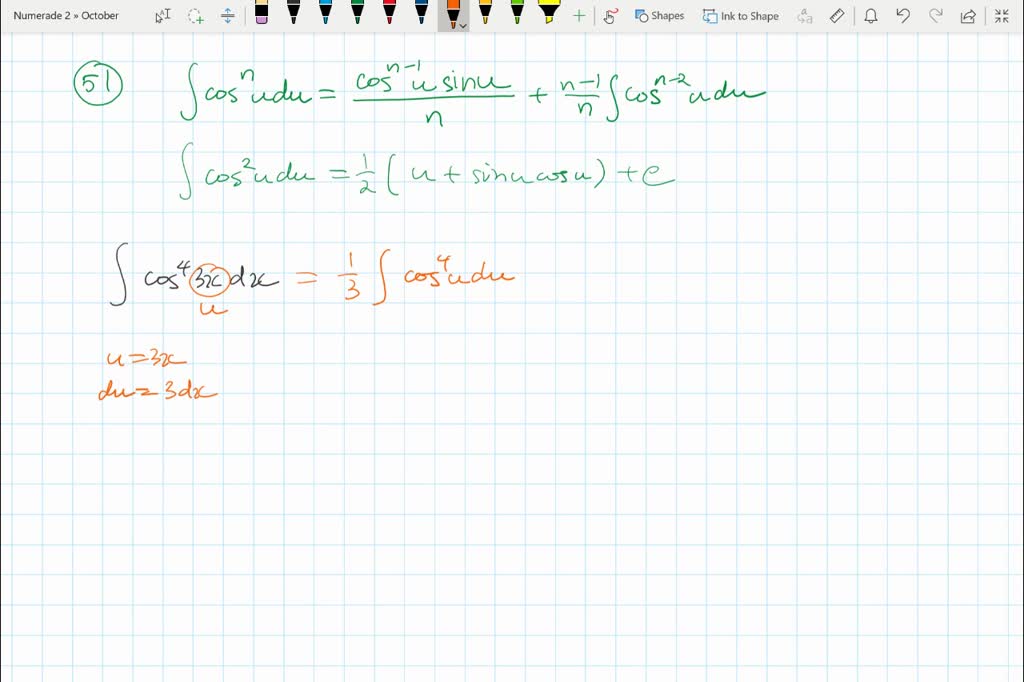 Numerade 2 » October Shapes Ink to Shape
51 ∫ cos^n u du = (cos^{n-1} u sin u)/n + (n-1)/n ∫ cos^{n-2} u du
∫ cos^2 u du = 1/2 ( u + sin u cos u ) + c
∫ cos^4 3x dx = 1/3 ∫ cos^4 u du
u
u = 3x
du = 3dx